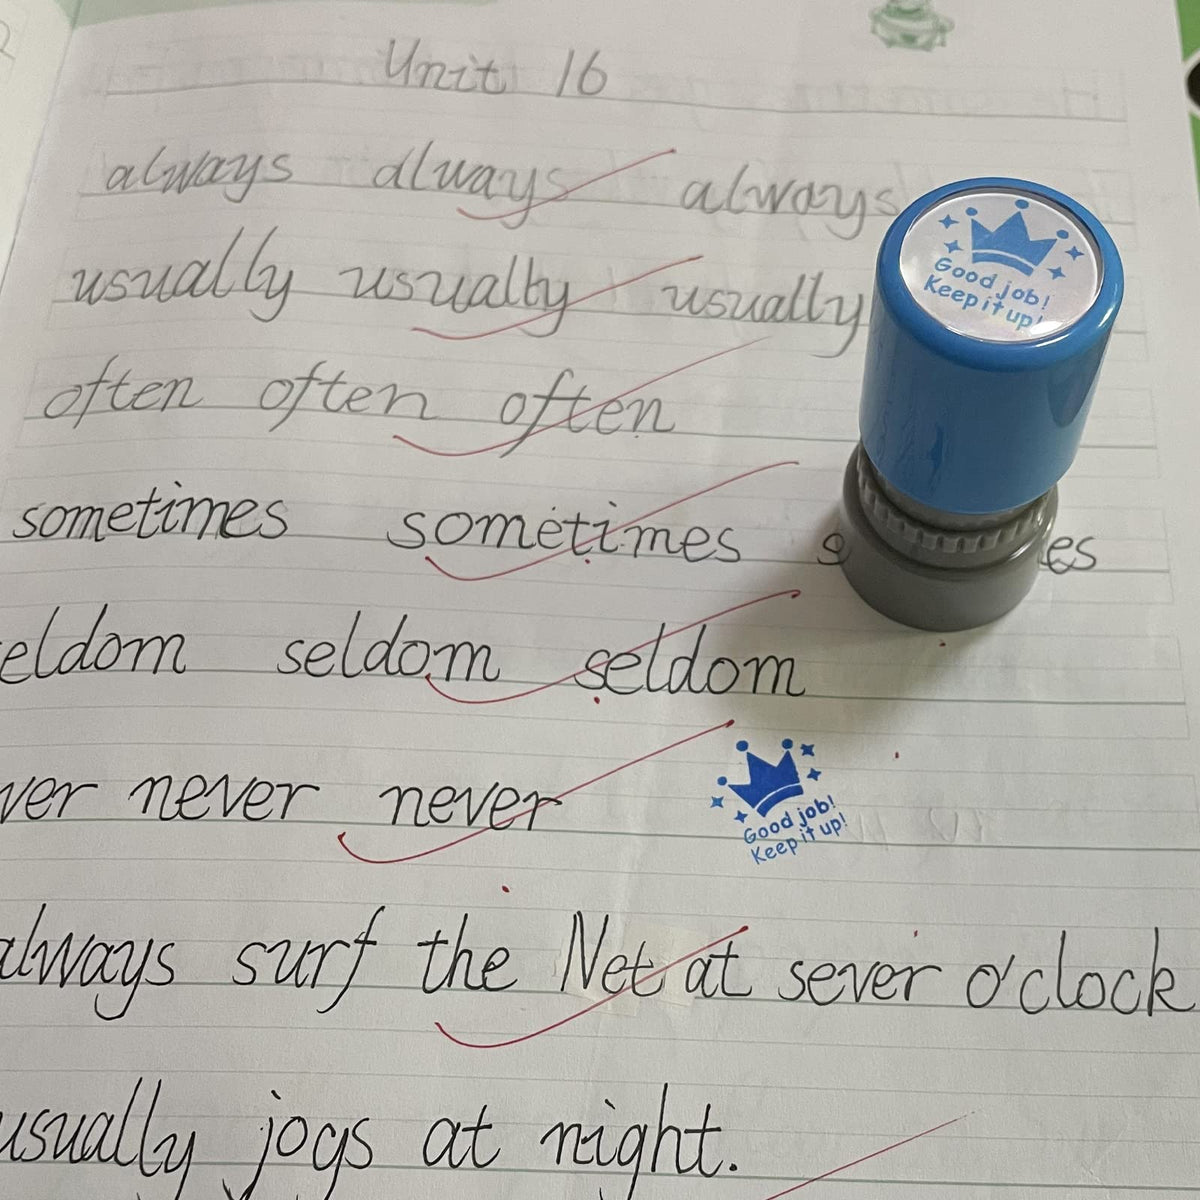 Unit 16
always always always
usually usually usually
Good job!
Keep it up!
often often often
sometimes sometimes s es
eldom seldom seldom
ver never never
Good job!
Keep it up!
always surf the Net at sever o'clock
usually jogs at night.